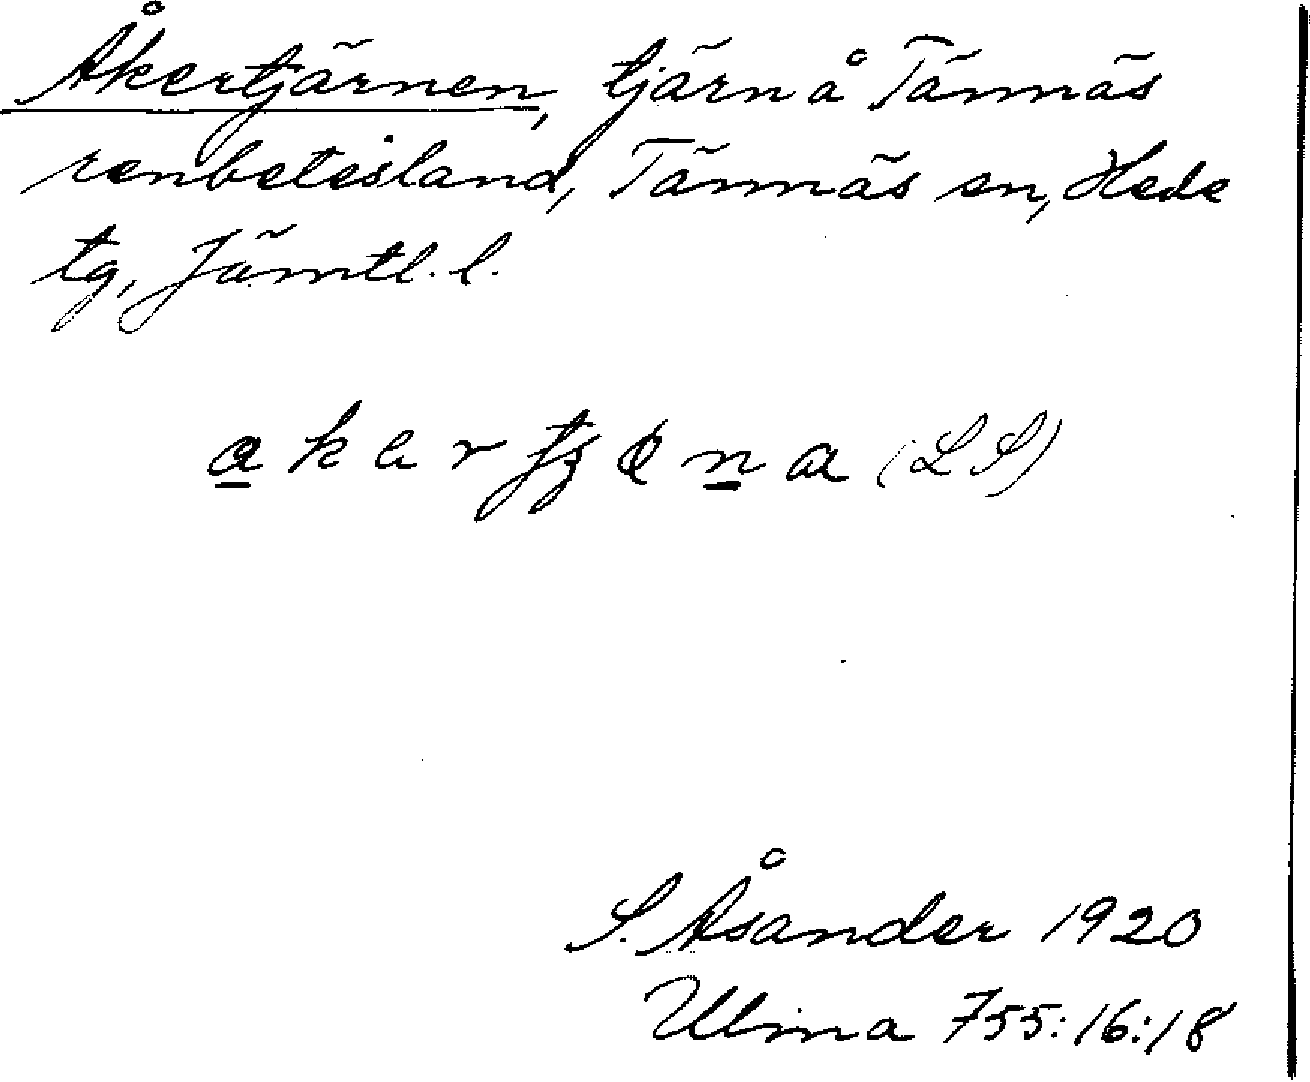 Åkertjärnen, tjärn å Tännäs
renbetesland, Tännäs sn, Hede
tg, Jämtl. l.
(LS)
S. Åsander 1920
Ulma 755:16:18